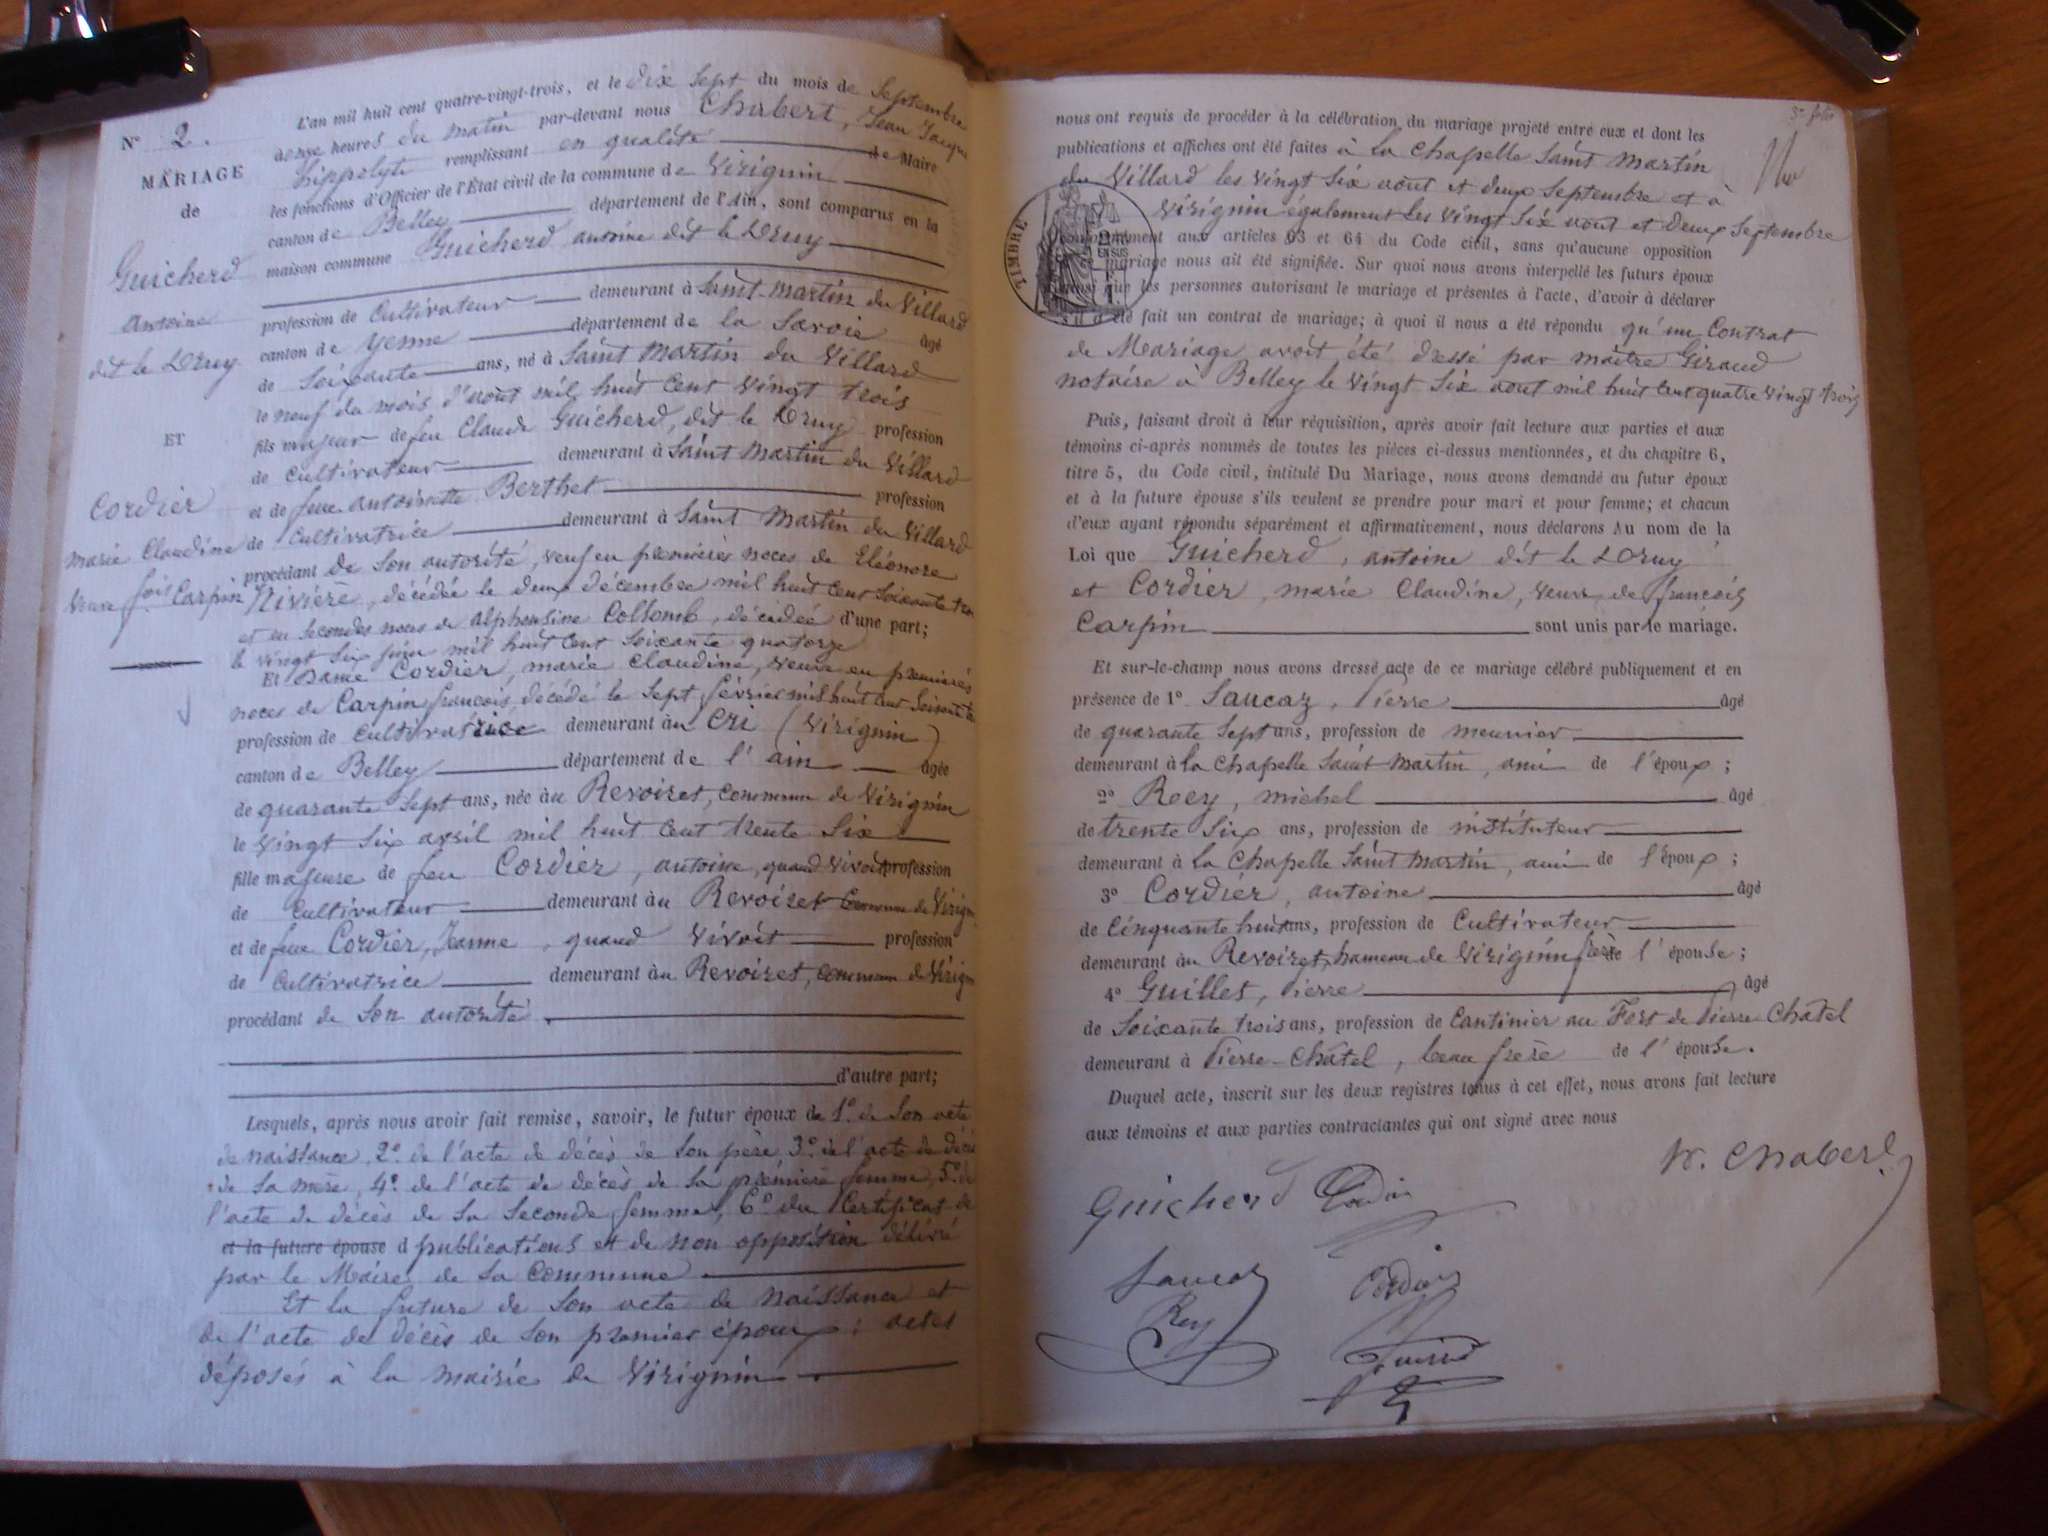 N° 2.
MARIAGE
de
Guicherd
Antoine
dit le Druy
ET
Cordier
marie Claudine
veuve fois Carpin
L'an mil huit cent quatre-vingt-trois, et le dix sept du mois de Septembre
à onze heures du matin par-devant nous Chabert, Jean Jacques
hippolyte remplissant en qualité de Maire
les fonctions d'Officier de l'État civil de la commune de Virignin
canton de Belley département de l'Ain, sont comparus en la
maison commune Guicherd antoine dit le Druy
profession de Cultivateur demeurant à Saint-Martin du Villard
canton de Yenne département de la Savoie âgé
de Soixante ans, né à Saint Martin du Villard
le neuf du mois d'août mil huit Cent vingt trois
fils majeur de feu Claude Guicherd, dit le Druy profession
de cultivateur demeurant à Saint Martin du Villard
et de feue antoinette Berthet profession
de Cultivatrice demeurant à Saint Martin du Villard
procédant de Son autorité, veuf en premières noces de Eléonore
Rivière, décédée le deux décembre mil huit Cent Soixante trois
et en Secondes noces de alphonsine Collomb, décédée d'une part;
le vingt Six juin mil huit Cent Soixante quatorze
Et Dame Cordier, marie Claudine, veuve en premières
noces de Carpin françois, décédé le Sept février mil huit Cent Soixante
profession de Cultivatrice demeurant au Cri (Virignin)
canton de Belley département de l'ain âgée
de quarante Sept ans, née au Revoiret, commune de Virignin
le vingt Six avril mil huit Cent trente Six
fille majeure de feu Cordier, antoine, quand vivait profession
de Cultivateur demeurant au Revoiret Commune de Virign
et de feue Cordier, Jeanne, quand vivait profession
de Cultivatrice demeurant au Revoiret, commune de Virign
procédant de Son autorité.
d'autre part;
Lesquels, après nous avoir fait remise, savoir, le futur époux de 1°. de Son acte
de naissance, 2°. de l'acte de décès de Son père, 3°. de l'acte de décès
de Sa mère, 4°. de l'acte de décès de Sa première femme, 5°. de
l'acte de décès de Sa Seconde femme, 6° du Certificat de
et la future épouse d publications et de non opposition délivré
par le Maire de Sa Commune
Et la future de Son acte de Naissance et
de l'acte de décès de Son premier époux; actes
déposés à la mairie de Virignin
3e folio
nous ont requis de procéder à la célébration du mariage projeté entre eux et dont les
publications et affiches ont été faites à La Chapelle Saint Martin
du Villard les Vingt Six août et deux Septembre et à
Virignin également les Vingt Six août et deux Septembre
conformément aux articles 63 et 64 du Code civil, sans qu'aucune opposition
à ce mariage nous ait été signifiée. Sur quoi nous avons interpellé les futurs époux
ainsi que les personnes autorisant le mariage et présentes à l'acte, d'avoir à déclarer
s'il a été fait un contrat de mariage; à quoi il nous a été répondu qu'un Contrat
de Mariage avait été dressé par maître Giraud
notaire à Belley le Vingt Six août mil huit Cent quatre vingt trois
TIMBRE
Puis, faisant droit à leur réquisition, après avoir fait lecture aux parties et aux
témoins ci-après nommés de toutes les pièces ci-dessus mentionnées, et du chapitre 6,
titre 5, du Code civil, intitulé Du Mariage, nous avons demandé au futur époux
et à la future épouse s'ils veulent se prendre pour mari et pour femme; et chacun
d'eux ayant répondu séparément et affirmativement, nous déclarons Au nom de la
Loi que Guicherd, antoine dit le Druy
et Cordier, marie Claudine, veuve de françois
Carpin sont unis par le mariage.
Et sur-le-champ nous avons dressé acte de ce mariage célébré publiquement et en
présence de 1° Saucaz, Pierre âgé
de quarante Sept ans, profession de meunier
demeurant à la Chapelle Saint-Martin, ami de l'époux;
2° Roey, michel âgé
de trente Six ans, profession de instituteur
demeurant à la Chapelle Saint Martin, ami de l'époux;
3° Cordier, antoine âgé
de Cinquante huit ans, profession de Cultivateur
demeurant au Revoiret, hameau de Virignin frère de l'épouse;
4° Guillet, Pierre âgé
de Soixante trois ans, profession de Cantinier au Fort de Pierre-Châtel
demeurant à Pierre-Châtel, beau frère de l'épouse.
Duquel acte, inscrit sur les deux registres tenus à cet effet, nous avons fait lecture
aux témoins et aux parties contractantes qui ont signé avec nous
H. Chabert
Guicherd Cordier
Saucaz Cordier
Rey